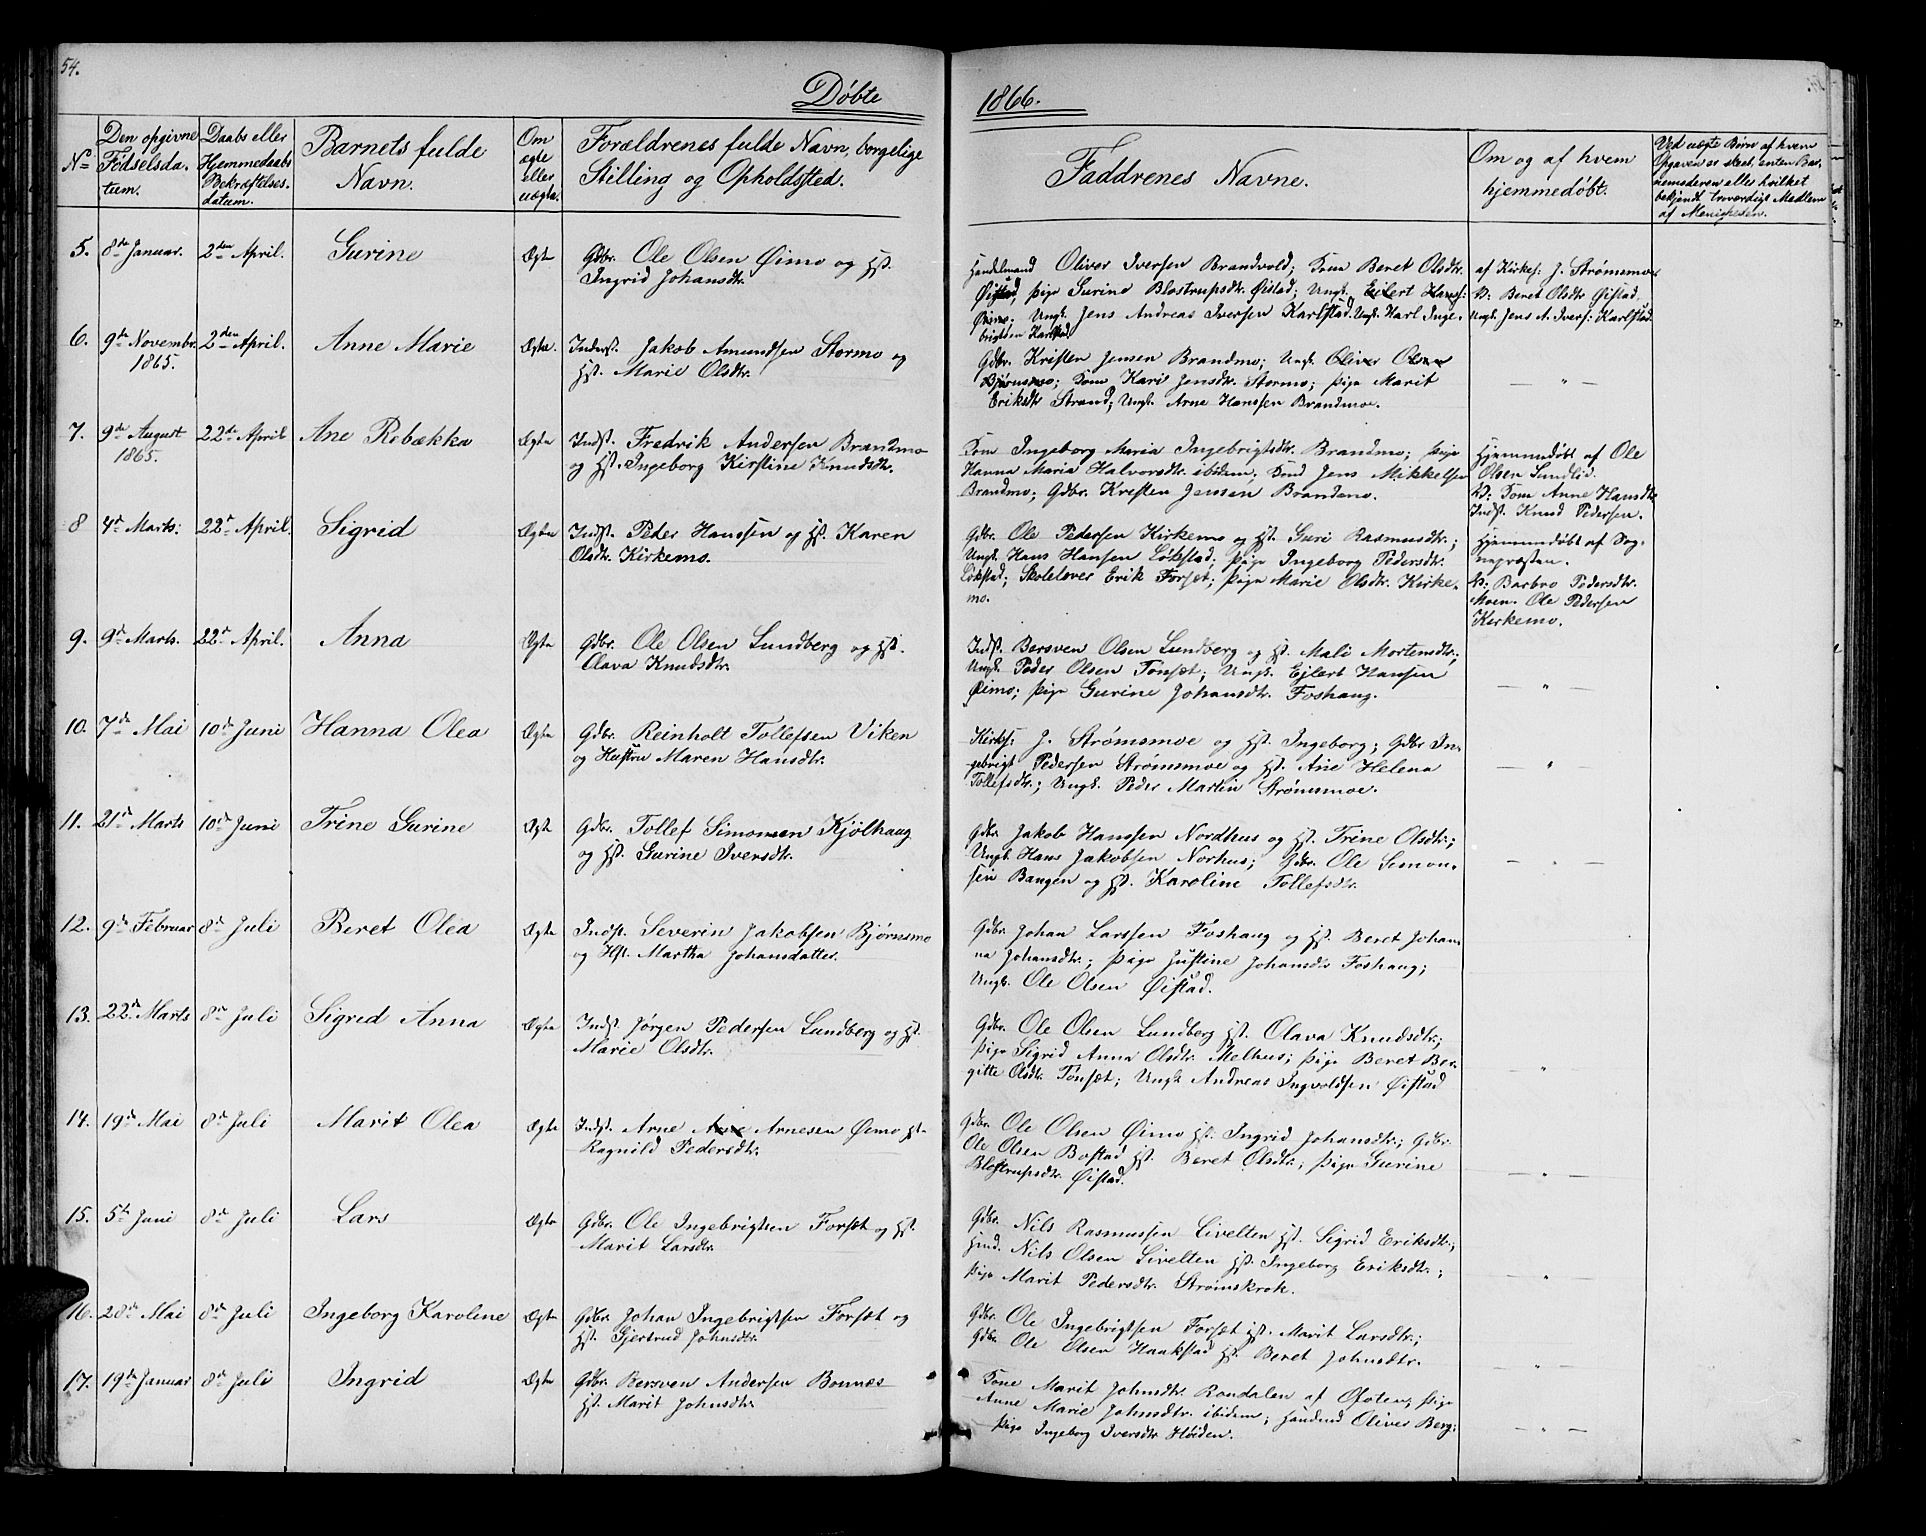 54.
Døbte
1866.
No
Den opgivne
Fødselsda-
tum.
Daabs eller
Hjemmedaabs
Bekræftelses-
datum.
Barnets fulde
Navn.
Om
ægte
eller
uægte.
Forældrenes fulde Navn, borgelige
Stilling og Opholdssted.
Faddrenes Navne.
Om og af hvem
hjemmedøbt.
Ved uægte Børn af hvem
Opgaven er skeet, enten Bar-
nemoderen eller hvilket
bekjendt troværdigt Medlem
af Menigheden.
5. 8de Januar. 2den April. Gurine Ægte Gdbr. Ole Olsen Øimo og Hst.
Ingrid Johansdtr.
Handelsmand Oliver Iversen Brandvold; Kone Beret Olsdtr.
Øistad; Pige Gurine Blostrupsdtr. Øistad; Ungk. Eilert Hans:
Øimo. Ungk. Jens Andreas Iversen Karlstad. Ungk. Karl Inge-
brigtsen Karlstad
af Kirkes: J. Strømsmoe
V: Beret Olsdtr Øistad.
Ungk. Jens A. Ivers: Karlstad.
6. 9de Novembr. 2den April. Anne Marie Ægte. Inderst. Jakob Amundsen Stormo og
1865.
Hst. Marie Olsdtr.
Gdbr. Kristen Jensen Brandmo; Ungk. Oliver Olsen
Bjørnsmo; Kone Kari Jensdtr. Stormo; Pige Marit
Eriksdtr Strand; Ungk. Arne Hanssen Brandmoe.
— " —
7. 9de August 22de April Ane Rebækka Ægte Indst. Fredrik Andersen Brandmo
1865.
og Hst. Ingeborg Kirstine Knudsdtr.
Kone Ingeborg Maria Ingebrigtsdtr. Brandmo; Pige
Hanna Maria Halvorsdtr. ibidem; Jens Mikkelsen
Brandmo; Gdbr. Kristen Jensen Brandmo.
Hjemmedøbt af Ole
Olsen Sundlid.
V: Kone Anne Hansdtr
Indst. Knud Pedersen.
8 4d Marts: 22d April. Sigrid Ægte Indst. Peder Hanssen og Hst. Karen
Olsdtr. Kirkemo.
Gdbr. Ole Pedersen Kirkemo og Hst. Guri Rasmusdtr.;
Ungk. Hans Hansen Løkstad; Pige Ingeborg Pedersdtr.
Løkstad; Skolelærer Erik Forsæt; Pige Marie Olsdtr. Kirke-
mo.
Hjemmedøbt af Sog-
nepræsten.
V: Barbro Pedersdtr.
Moen. Ole Pedersen
Kirkemo.
9. 9d Marts. 22d April. Anna Ægte Gdbr. Ole Olsen Lundberg og Hst.
Olava Knudsdtr.
Indst. Bersven Olsen Lundberg og Hst. Mali Mortensdtr.;
Ungk. Peder Olsen Tonsæt; Ungk. Ejlert Hansen
Øimo; Pige Gurine Johansdtr. Foshaug.
— " —
10. 7de Mai 10de Juni Hanna Olea Ægte Gdbr. Reinholt Tollefsen Viken
og Hustru Maren Hansdtr.
Kirks: J. Strømsmoe og Hst. Ingeborg; Gdbr In-
gebrigt Pedersen Strømsmoe og Hst. Ane Helena
Tollefsdtr.; Ungk. Peder Martin Strømsmoe.
— " —
11. 21de Marts 10de Juni Trine Gurine Ægte Gdbr. Tollef Simonsen Kjølhaug
og Hst. Gurine Iversdtr.
Gdbr. Jakob Hanssen Nordhus og Hst. Trine Olsdtr.;
Ungk. Hans Jakobsen Norhus; Gdbr. Ole Simon-
sen Bangen og Hst. Karoline Tollefsdtr.
— " —
12. 9de Februar 8de Juli Beret Olea Ægte Indst. Severin Jakobsen Bjørnsmo
og Hst. Martha Johansdatter.
Gdbr. Johan Larssen Foshaug og Hst. Beret Johan-
na Johansdtr.; Pige Justine Johansdtr Foshaug;
Ungk. Ole Olsen Øistad.
13. 22de Marts 8de Juli Sigred Anna Ægte Indst. Jørgen Pedersen Lundberg og Hst.
Marie Olsdtr.
Gdbr. Ole Olsen Lundberg Hst. Olava Knudsdtr.;
Pige Sigrid Anna Olsdtr. Melhus; Pige Beret Ber-
gitte Olsdtr. Tonsæt; Ungk Andreas Ingvoldsen Øistad
"
14. 19de Mai 8de Juli Marit Olea Ægte Indst. Arne Arne Arnesen Øimo Hst.
Ragnild Pedersdtr.
Gdbr. Ole Olsen Øimo Hst. Ingrid Johansdtr.; Gdbr.
Ole Olsen Bostad Hst. Beret Olsdtr.; Pige Gurine
Blostrupsdtr. Øistad.
— " —
15. 5te Juni 8de Juli Lars Ægte Gdbr. Ole Ingebrigtsen Forsæt og Hst.
Marit Larsdtr.
Gdbr. Nils Rasmussen Livelten Hst. Sigrid Eriksdtr.;
Hmd. Nils Olsen Livelten Hst. Ingeborg Eriksdtr.;
Pige Marit Pedersdtr. Strømskrok.
— " —
16. 28de Mai 8de Juli Ingeborg Karoline Ægte Gdbr. Johan Ingebrigtsen Forsæt og
Hst. Gjertrud Johnsdtr.
Gdbr. Ole Ingebrigtsen Forsæt Hst. Marit Larsdtr.;
Gdbr. Ole Olsen Haakstad Hst. Beret Johnsdtr.
— " —
17. 19de Januar 8de Juli Ingrid Ægte Gdbr. Bersven Andersen Bonnæs
Hst. Marit Johnsdtr.
Kone Marit Johnsdtr. Rondalen af Ofoten; Pige
Anne Marie Johnsdtr. ibidem; Oliver Berg:
Pige Ingeborg Iversdtr Høiden.
— " —